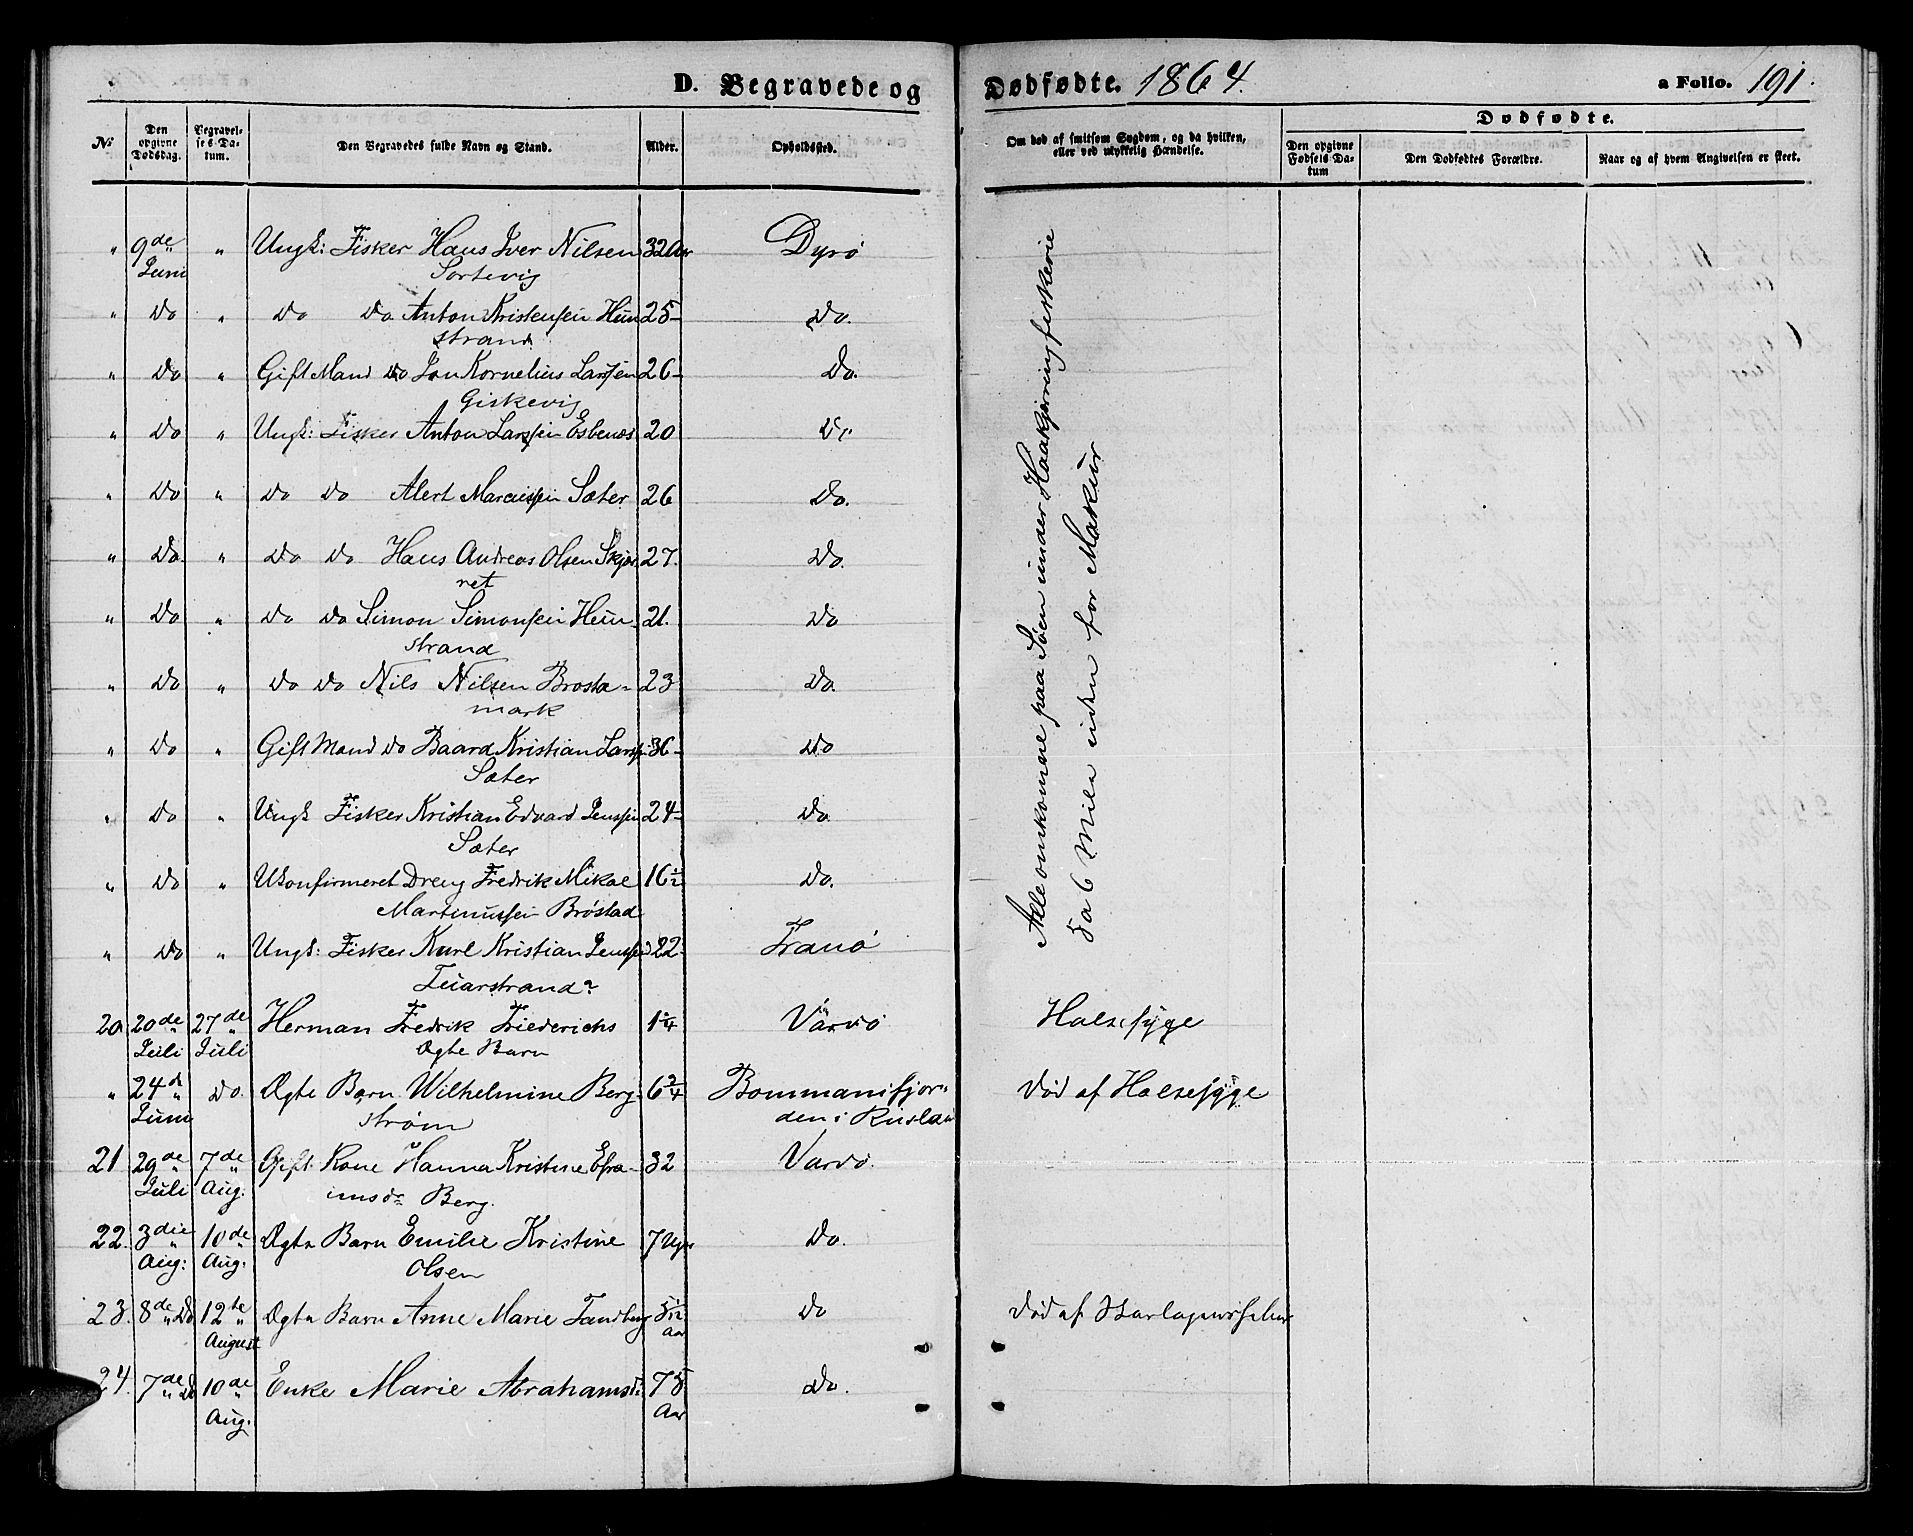 D. Begravede og Dødfødte. 1864. a Folio. 191.
No Den opgivne Dødsdag. Begravelses-Datum. Den Begravedes fulde Navn og Stand. Alder. Opholdssted. Om død af smitsom Sygdom, og da hvilken, eller ved ulykkelig Hændelse. Dødfødte.
Den opgivne Fødsels Datum Den Dødfødtes Forældre. Naar og af hvem Angivelsen er skeet.
" 9de Juni " Ungk: Fisker Hans Iver Nilsen 32 Aar Dyrö
Sortevig
" Do " Do Do Anton Kristensen Hun 25 Do.
strand
" Do " Gift Mand Do Jon Kornelius Larssen 26 Do.
Giskevig
" Do " Ungk: Fisker Anton Larssen Esbenæs 20 Do
" Do " Do Do Alert Marcussen Sæter 26 Do.
" Do " Do Do Hans Andreas Olsen Skjær 27. Do.
ret
" Do " Do Do Simon Simonsen Hun 21. Do
strand
" Do " Do Do Nils Nilsen Brosta- 23 Do.
mark
" Do " Gift Mand Do Baard Kristian Larss 36 Do
Sæter
" Do " Ungk Fisker Kristian Edvard Jenssen 24 Do
Sæter
" Do " Ukonfirmeret Dreng Fredrik Mikal 16 1/2 Do.
Martinussen Bröstad
" Do " Ungk: Fisker Karl Kristian Jenssen 22 Tranö
Alle omkomne paa Söen under Haakjerringfiskerie
5 a 6 Mile uden for Makur
20 20de 27de Herman Fredrik Friederichs 1 1/4 Vardö Halsesyge
Juli Juli Ægte Barn
" 24de Do. Ægte Barn Wilhelmine Berg- 6 3/4 Bommansfjor- Död af Halsesyge
Juni strøm den i Rusland
21 29de 7de Gift Kone Hanna Kristine Efra- 32 Vardö.
Juli Aug: imsdr Berg.
22. 3die 10de Ægte Barn Emilie Kristine 7 Uger Do.
Aug: Aug. Olsen
23. 8de Do 12te Ægte Barn Anne Marie Tandberg Do Död af
August Aar
24. 7de Do 10de Enke Marie Abrahamsdr 75 Do.
Aug. Aar